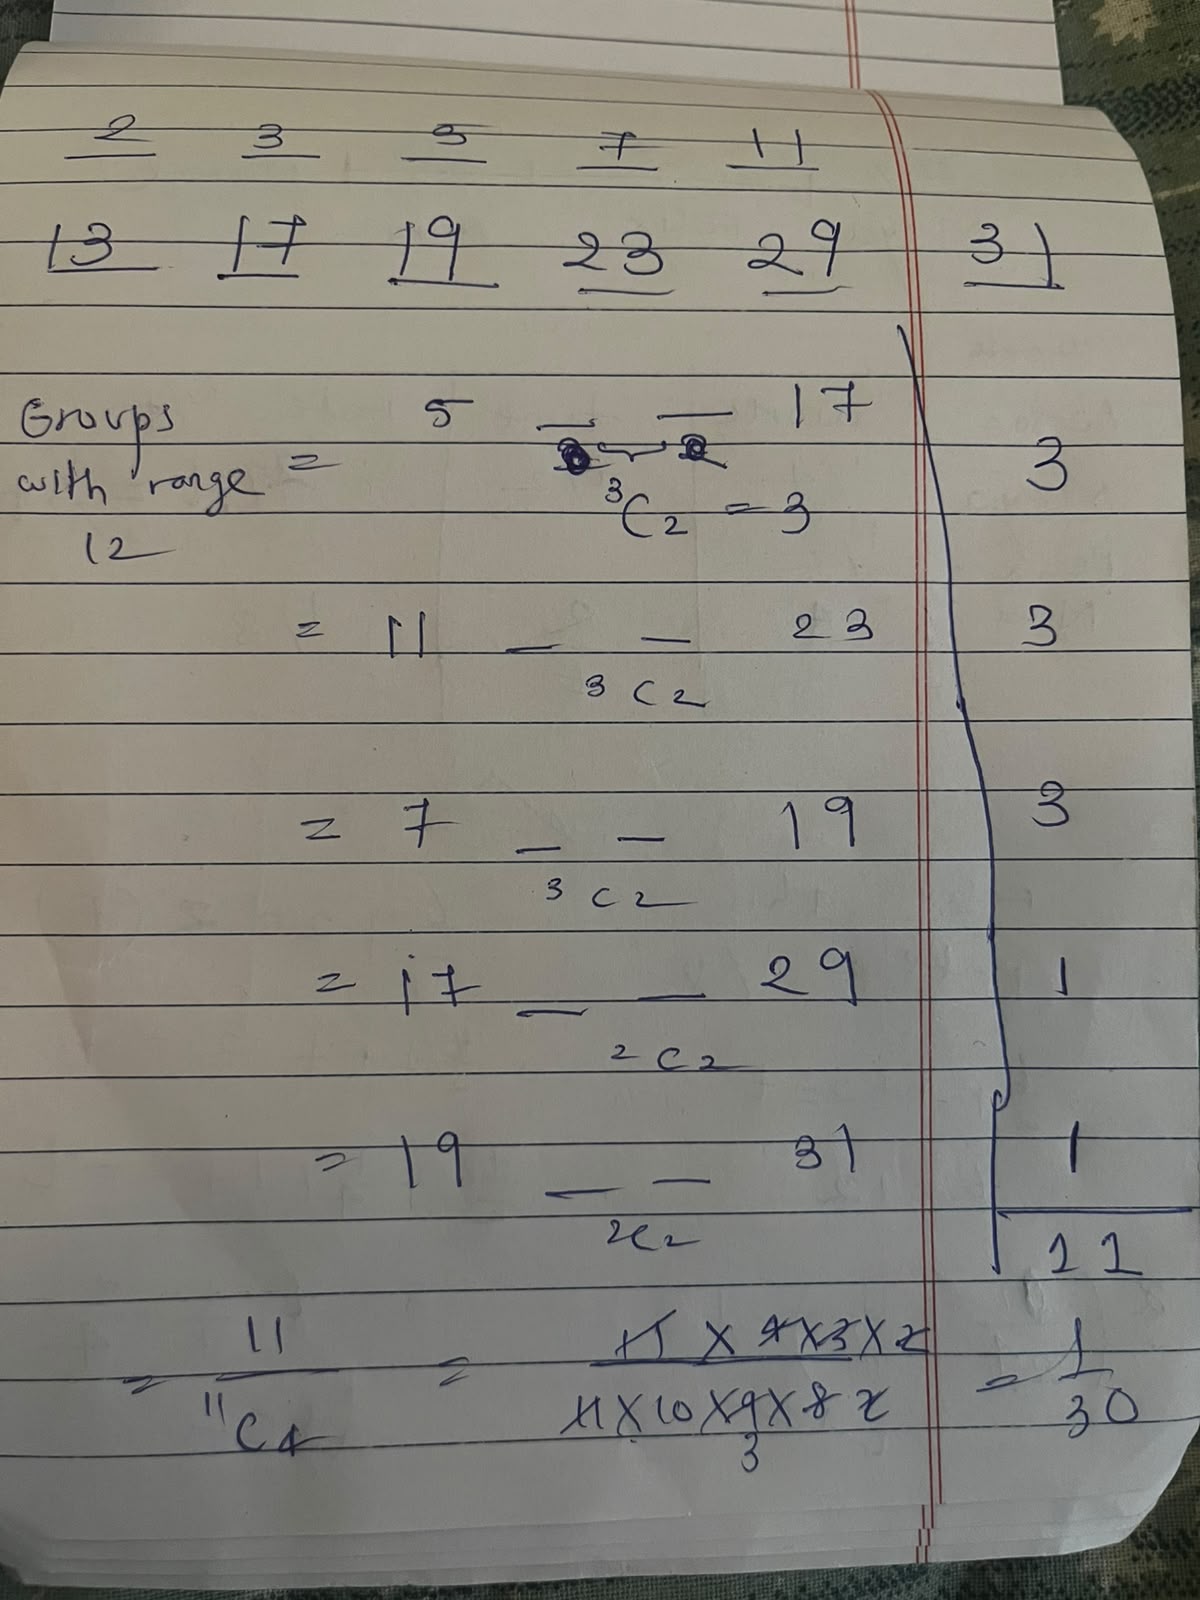 2 3 5 7 11
13 17 19 23 29 31
Groups with range 12 = 5 _ _ 17 3
³C₂ = 3
= 11 _ _ 23 3
³C₂
= 7 _ _ 19 3
³C₂
= 17 _ _ 29 1
²C₂
= 19 _ _ 31 1
²C₂
11
= 11 / ¹¹C₄ = 11 × 4 × 3 × 2 / 11 × 10 × 9 × 8 = 1 / 30
3